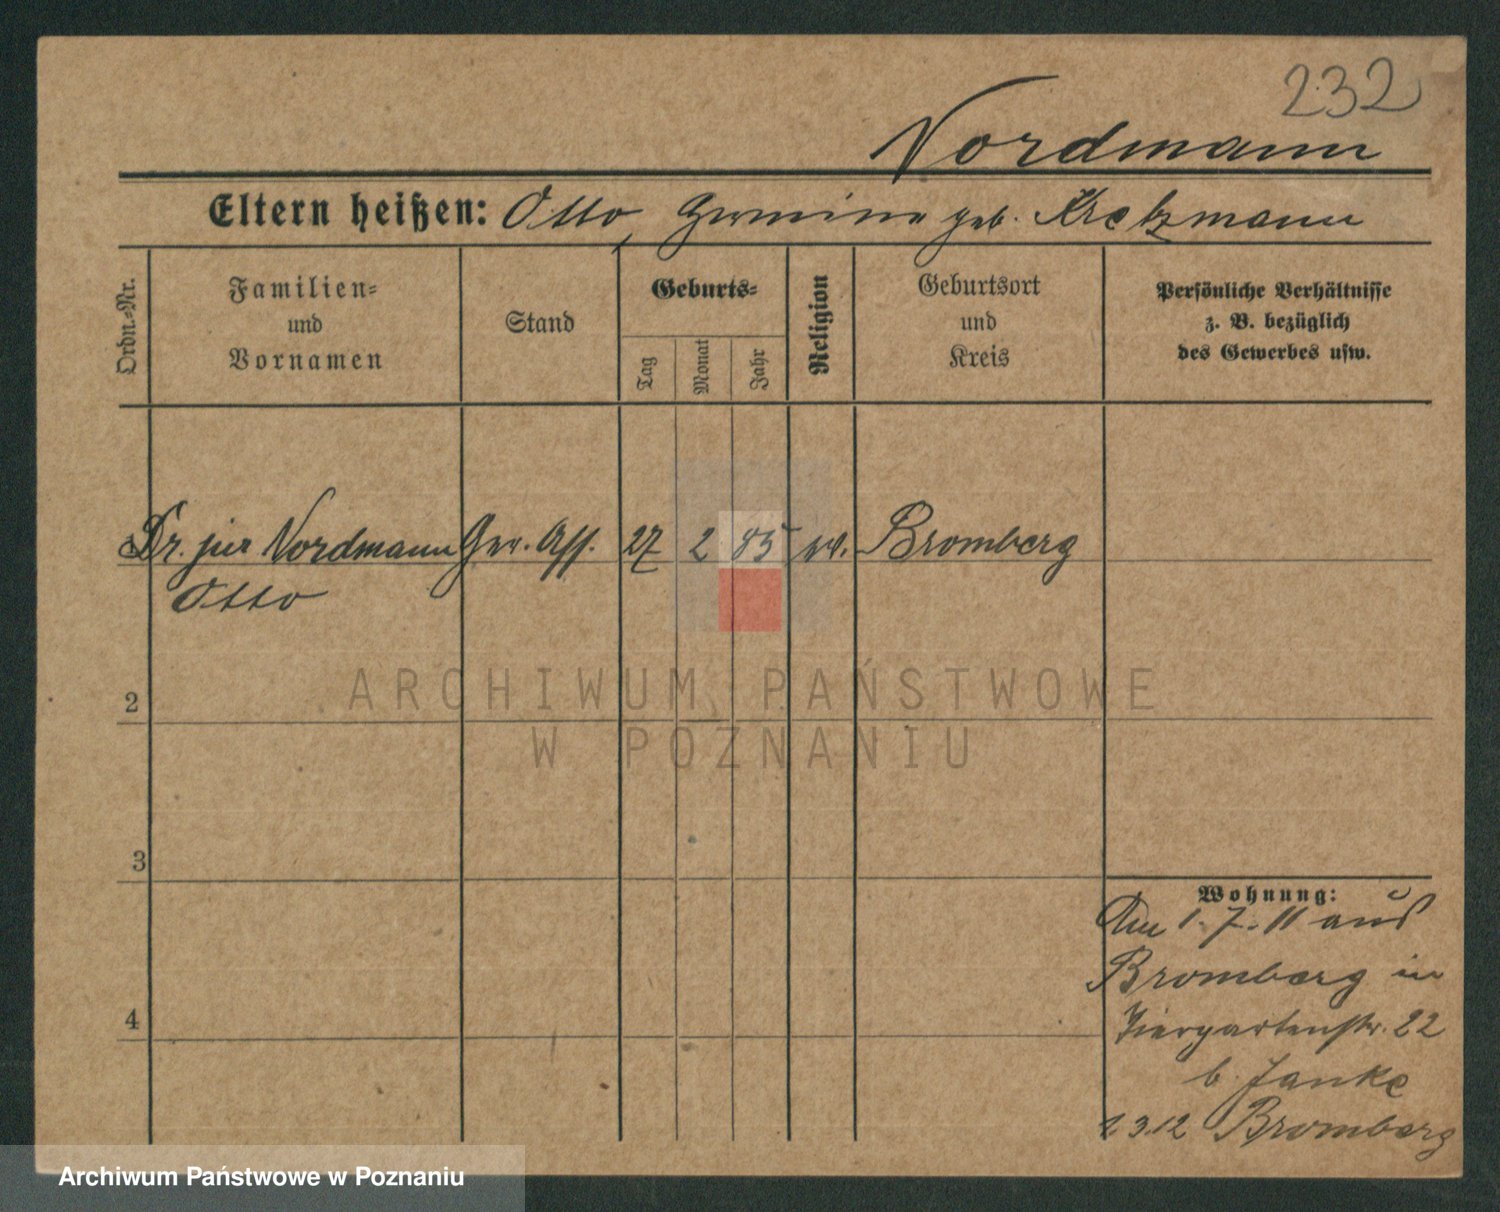 232
Nordmann
Eltern heißen: Otto, Hermine geb. Kretzmann
Ordn.-Nr.
Familien-
und
Vornamen
Stand
Geburts-
Tag
Monat
Jahr
Religion
Geburtsort
und
Kreis
Persönliche Verhältnisse
z. B. bezüglich
des Gewerbes usw.
Dr. jur Nordmann Ger. Ass. 27 2 85 ev. Bromberg
Otto
2
3
4
Wohnung:
Am 1.7.11 aus
Bromberg in
Tiergartenstr. 22
b. Janke
1.3.12 Bromberg
ARCHIWUM PAŃSTWOWE
W POZNANIU
Archiwum Państwowe w Poznaniu